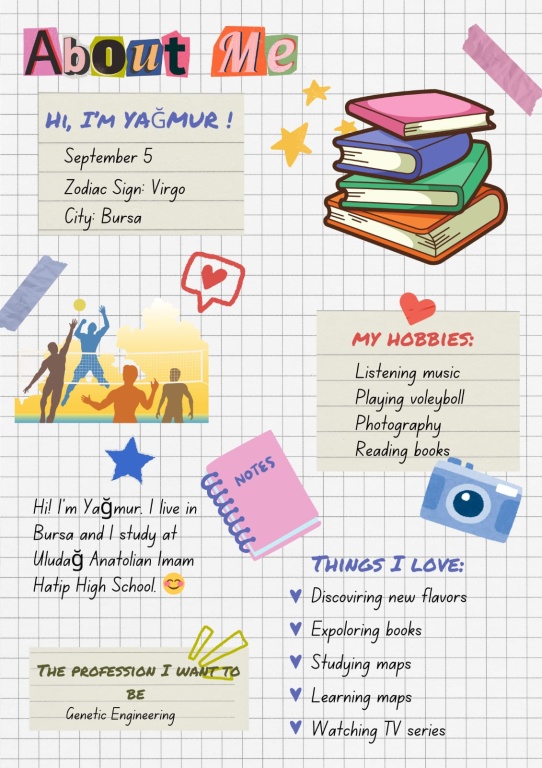 About Me
HI, I'M YAĞMUR !
September 5
Zodiac Sign: Virgo
City: Bursa
MY HOBBIES:
Listening music
Playing voleyboll
Photography
Reading books
NOTES
Hi! I'm Yağmur. I live in
Bursa and I study at
Uludağ Anatolian Imam
Hatip High School. 😊
THINGS I LOVE:
Discoviring new flavors
Expoloring books
Studying maps
Learning maps
Watching TV series
THE PROFESSION I WANT TO
BE
Genetic Engineering